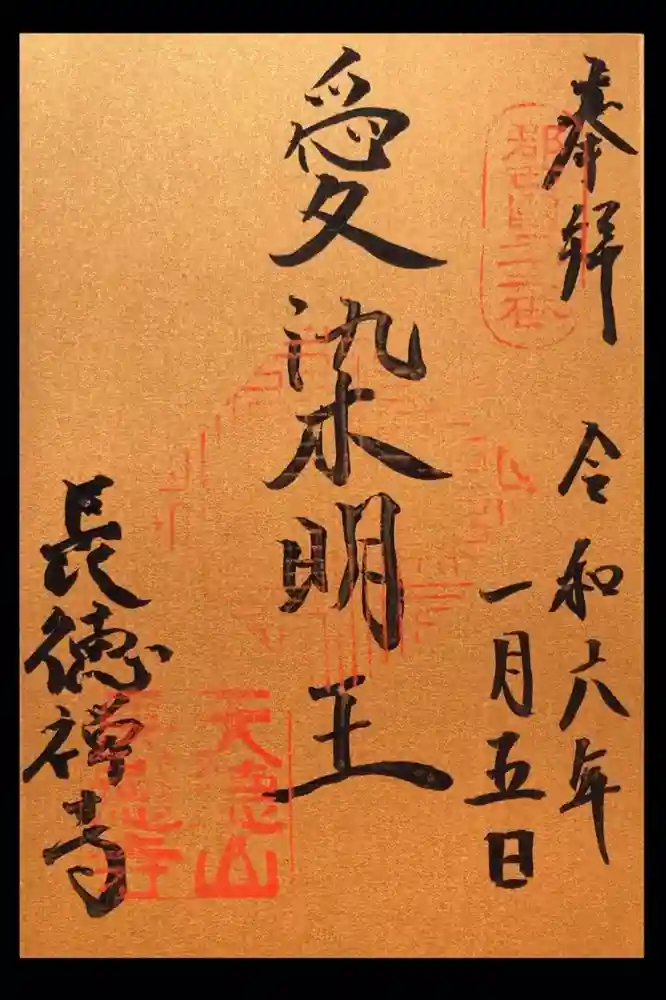 奉拝
令和六年
一月五日
愛染明王
長徳禅寺
天恵山